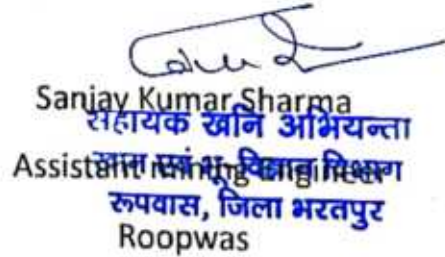 Sanjay Kumar Sharma
सहायक खनि अभियन्ता
Assistant Mining Engineer
खान एवं भू-विज्ञान विभाग
रूपवास, जिला भरतपुर
Roopwas